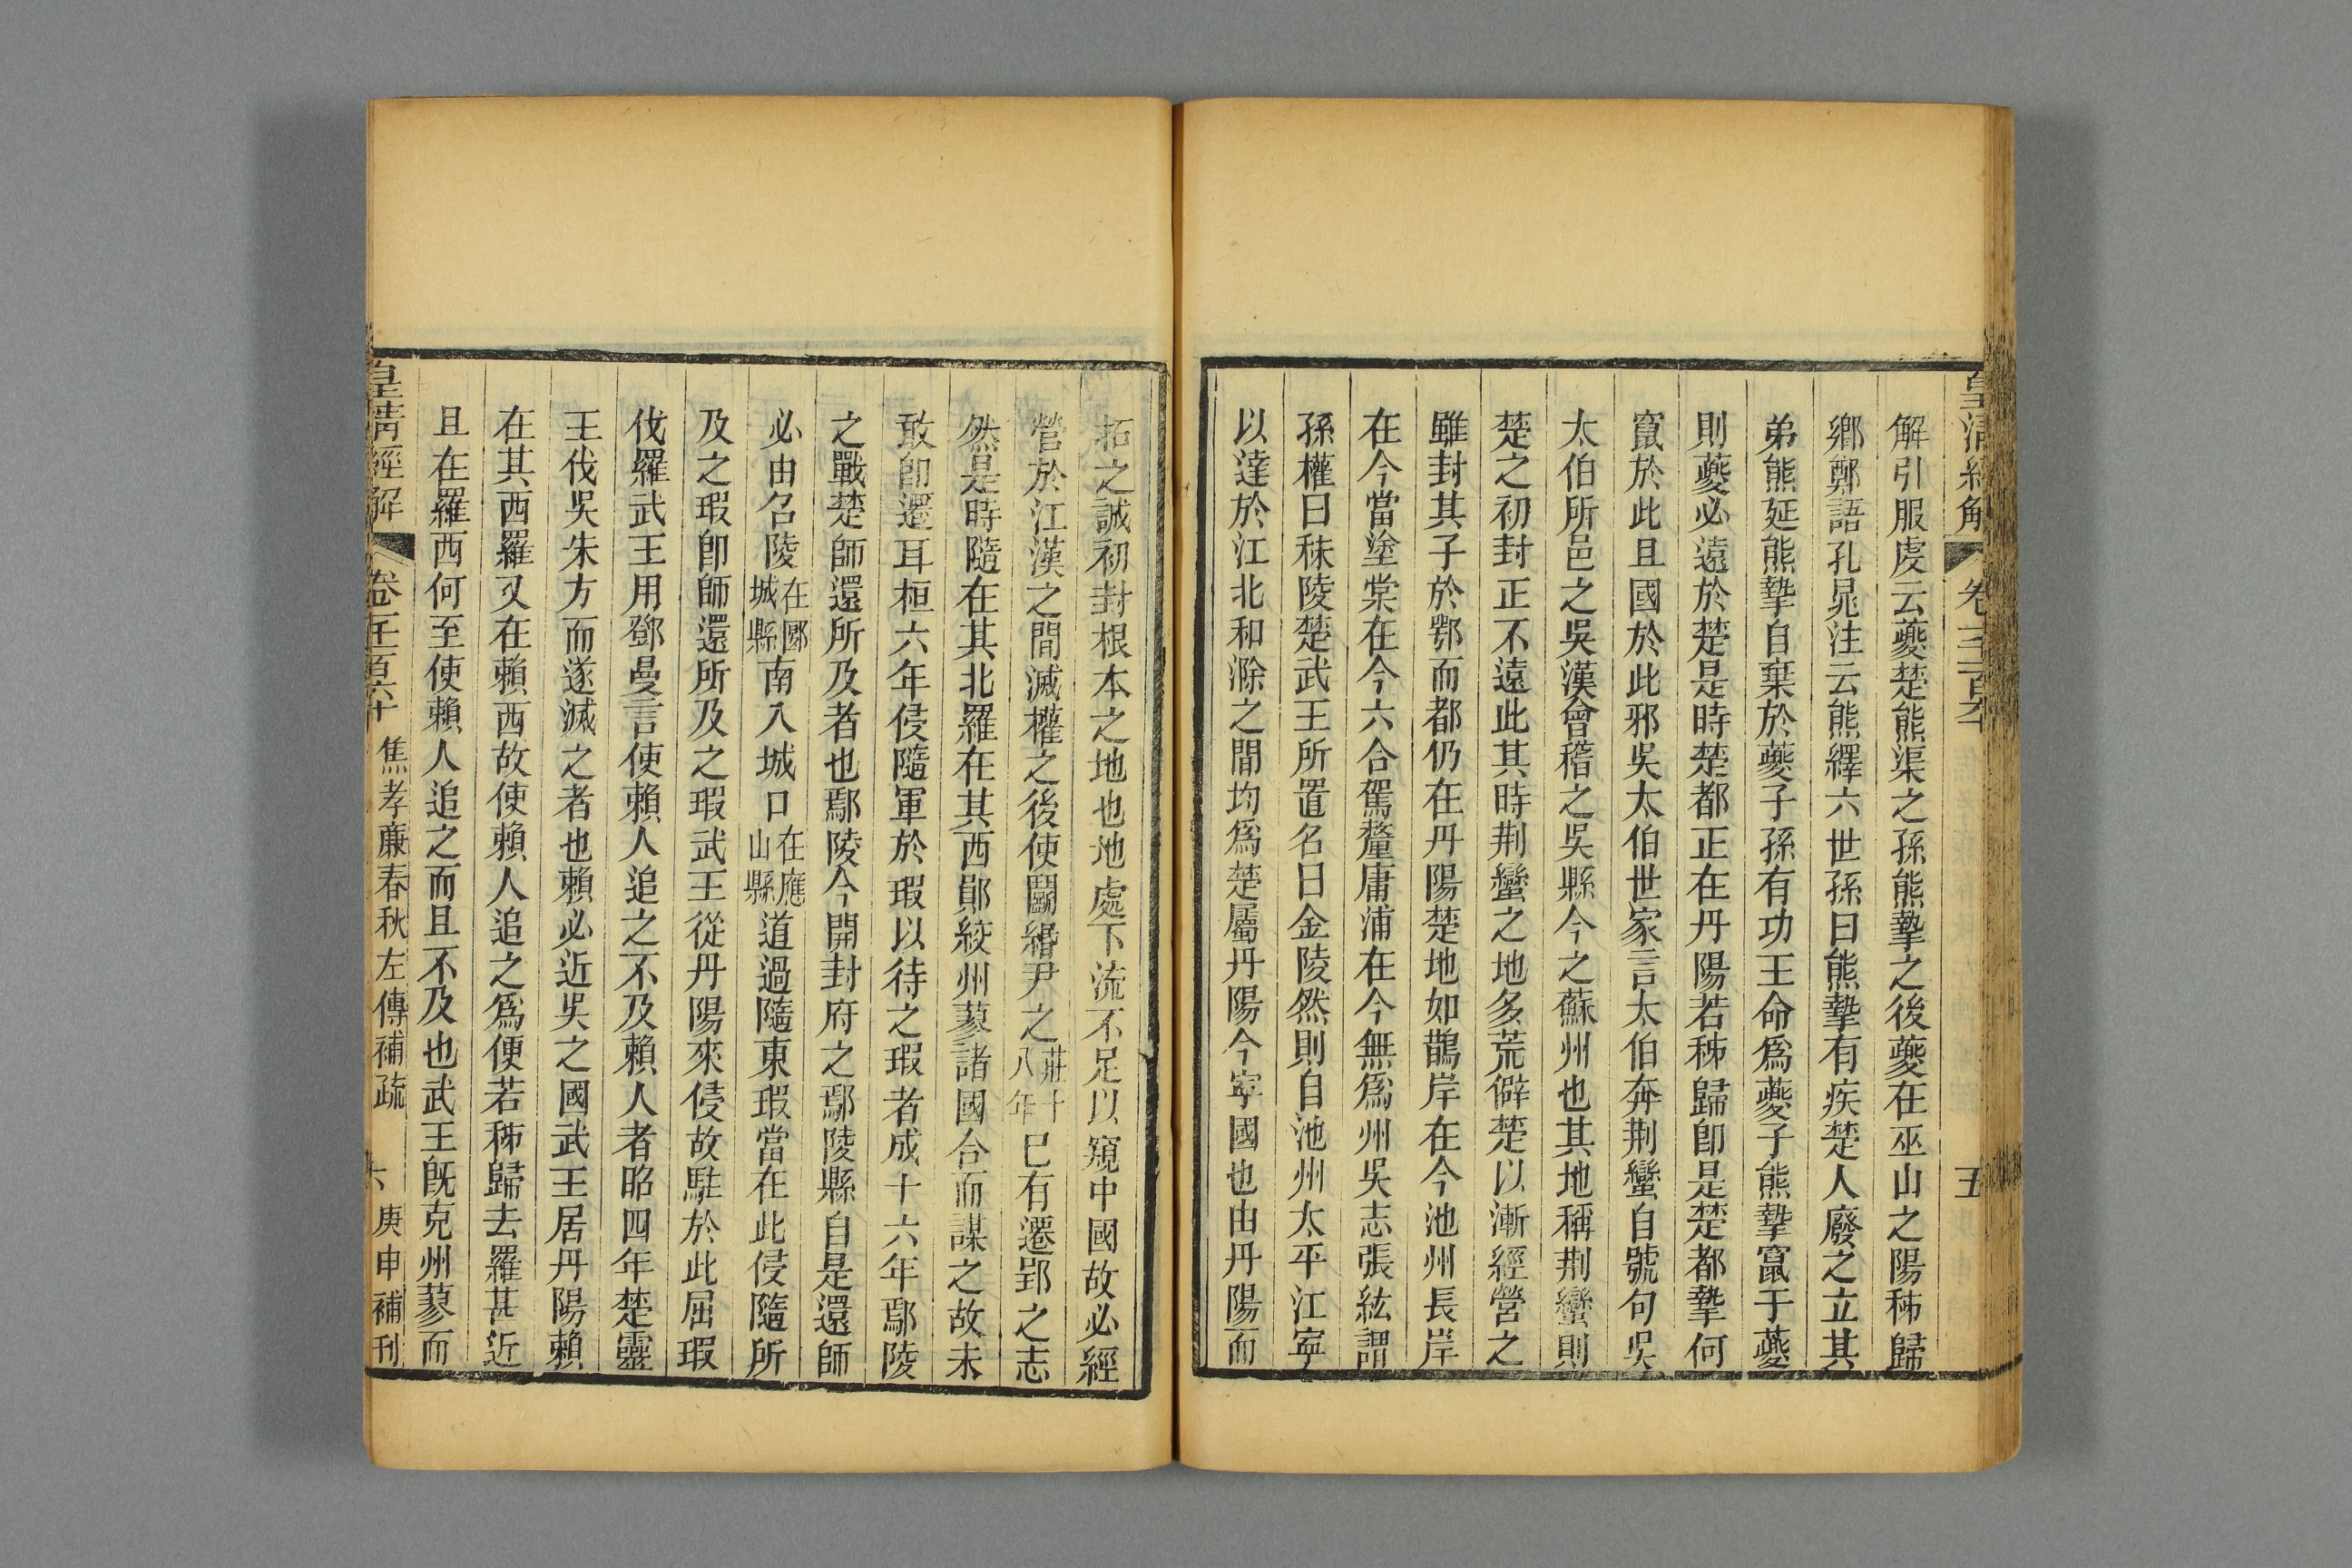 解引服虔云夔楚熊渠之孫熊摯之後夔在巫山之陽秭歸
鄉鄭語孔晁注云熊繹六世孫曰熊摯有疾楚人廢之立其
弟熊延熊摯自棄於夔子孫有功王命爲夔子熊摯竄于夔
則夔必遠於楚是時楚都正在丹陽若秭歸卽是楚都摯何
竄於此且國於此邪吳太伯世家言太伯奔荆蠻自號句吳
太伯所邑之吳漢會稽之吳縣今之蘇州也其地稱荆蠻則
楚之初封正不遠此其時荆蠻之地多荒僻楚以漸經營之
雖封其子於鄂而都仍在丹陽楚地如鵲岸在今池州長岸
在今當塗棠在今六合駕釐庸浦在今無爲州吳志張紘謂
孫權曰秣陵楚武王所置名曰金陵然則自池州太平江寧
以達於江北和滁之間均爲楚屬丹陽今寧國也由丹陽而
皇清經解 卷一千一百六十 五
拓之誠初封根本之地也地處下流不足以窺中國故必經
營於江漢之間滅權之後使鬬緡尹之莊十八年已有遷郢之志
然是時隨在其北羅在其西鄖絞州蓼諸國合而謀之故未
敢卽遷耳桓六年侵隨軍於瑕以待之瑕者成十六年鄢陵
之戰楚師還所及者也鄢陵今開封府之鄢陵縣自是還師
必由召陵在郾城縣南入城口在應山縣道過隨東瑕當在此侵隨所
及之瑕卽師還所及之瑕武王從丹陽來侵故駐於此屈瑕
伐羅武王用鄧曼言使賴人追之不及賴人者昭四年楚靈
王伐吳朱方而遂滅之者也賴必近吳之國武王居丹陽賴
在其西羅又在賴西故使賴人追之爲便若秭歸去羅甚近
且在羅西何至使賴人追之而且不及也武王旣克州蓼而
皇清經解 卷一千一百六十 焦孝廉春秋左傳補疏 六 庚申補刊